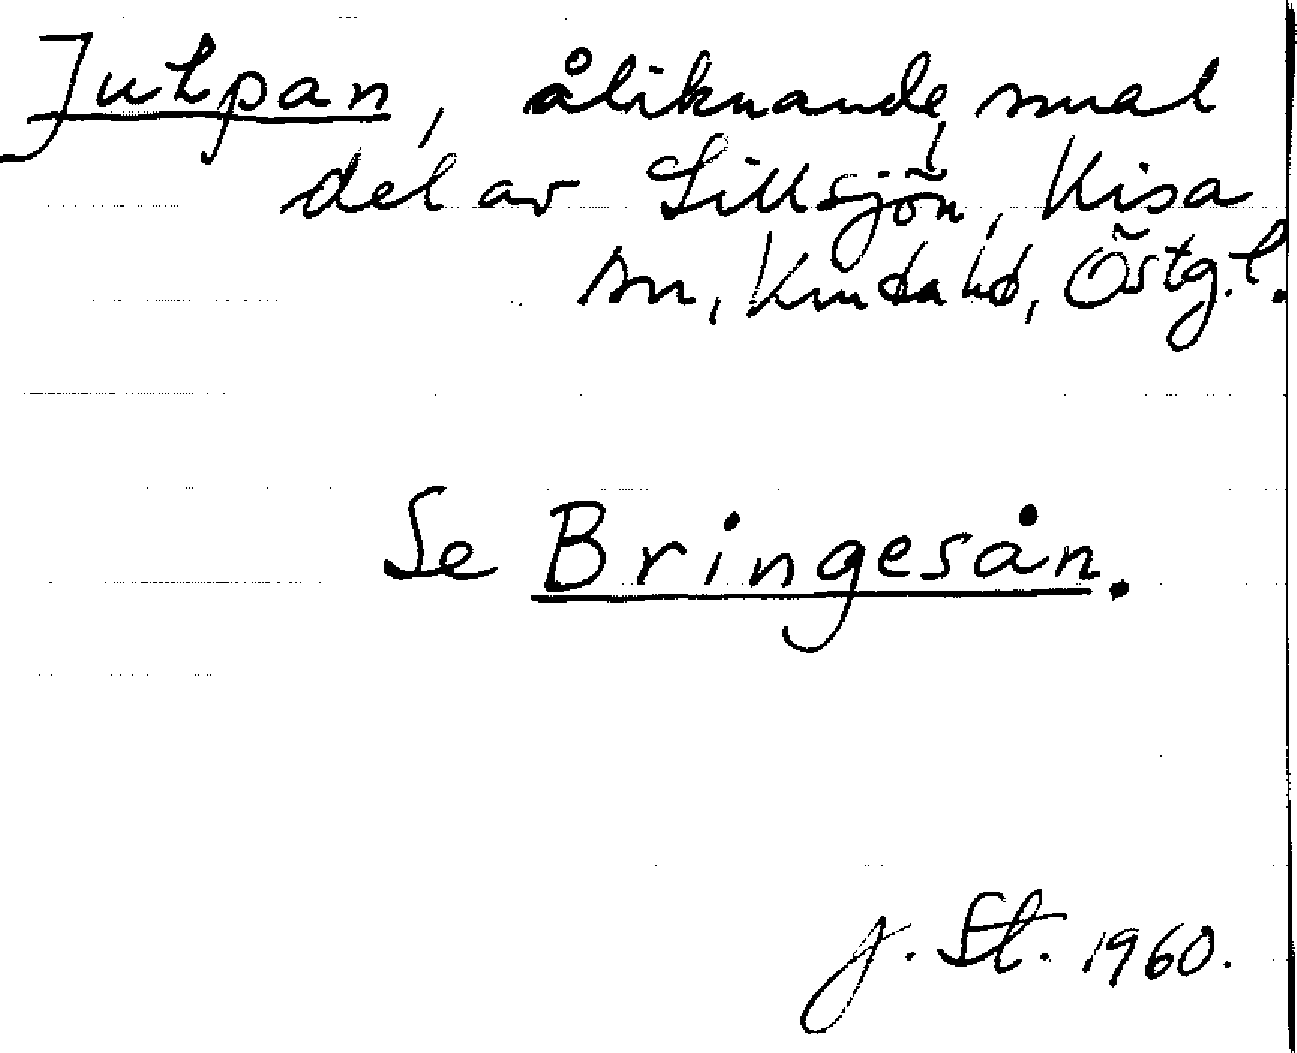 Jutpan, åliknande, smal
del av Lillsjön, Kisa
sn, Kinda hd, Östg.l.
Se Bringesån.
J. St. 1960.